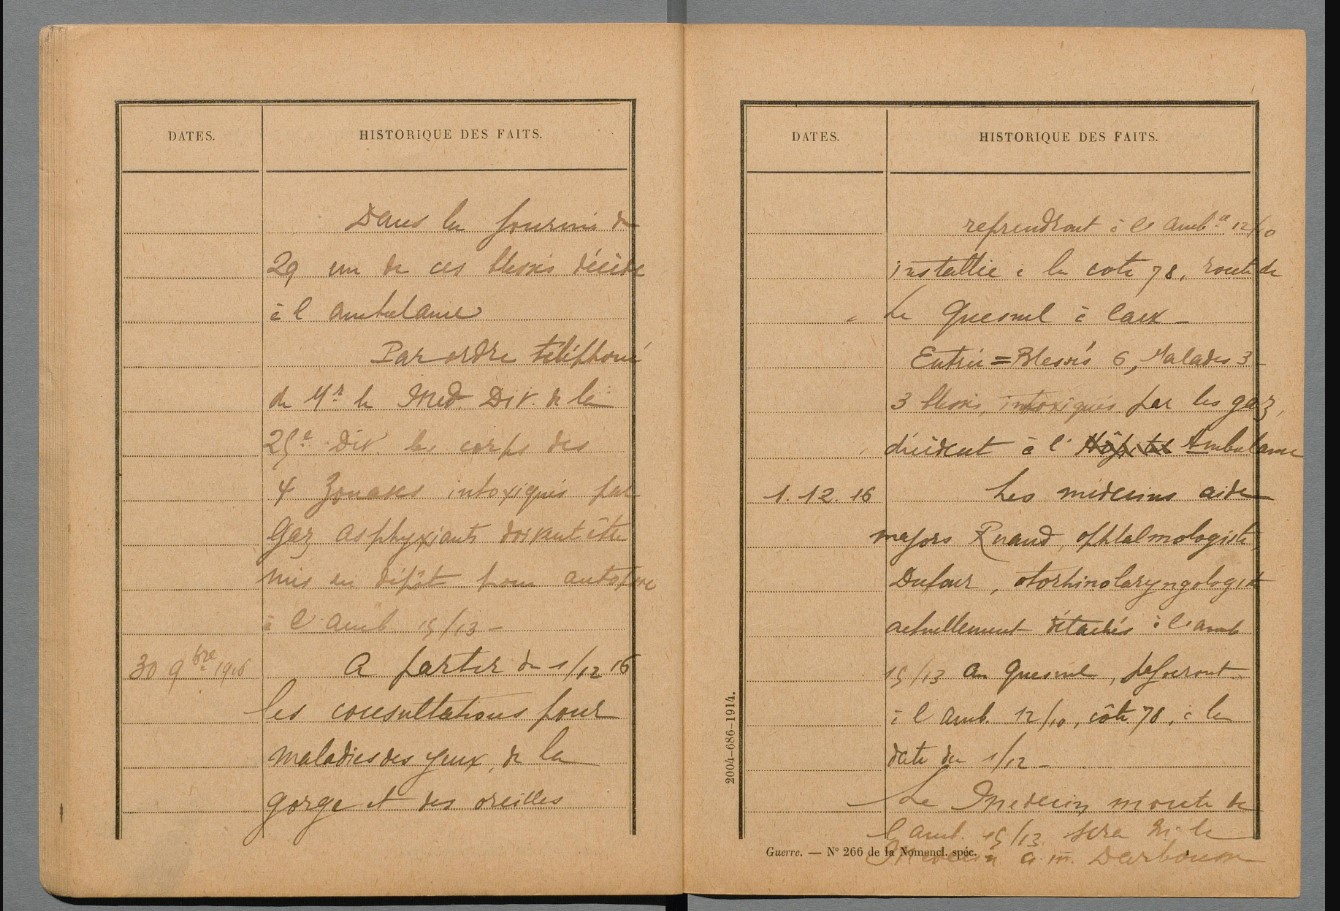 DATES.
HISTORIQUE DES FAITS.
Dans la journée du
29 un de ces blessés décède
à l'ambulance
Par ordre téléphoné
de Mr le Méd. Div. de la
25e Div les corps des
4 Zouaves intoxiqués par
gaz asphyxiants doivent être
mis en dépôt pour autopsie
à l'amb 15/13 –
30 9bre 1916 A partir du 1/12 16
les consultations pour
maladies des yeux, de la
gorge et des oreilles
DATES.
HISTORIQUE DES FAITS.
reprendront à l'Ambce 12/10
installée à la cote 78, route de
Le Quesnel à Caix –
Entrée = Blessés 6, Malades 3
3 blessés, intoxiqués par les gaz,
décèdent à l'Hôpital Ambulance
1. 12. 16 Les médecins aide
majors Ruaud, ophtalmologiste,
Dufour, otorhinolaryngologiste
actuellement détachés à l'amb
15/13 au Quesnel, passeront
à l'amb. 12/10, côte 78, à la
date du 1/12 –
Le Médecin monte de
l'amb. 15/13 sera Mr le
Médecin a. m.
Guerre. — N° 266 de la Nomencl. spéc.
2004-686-1914.